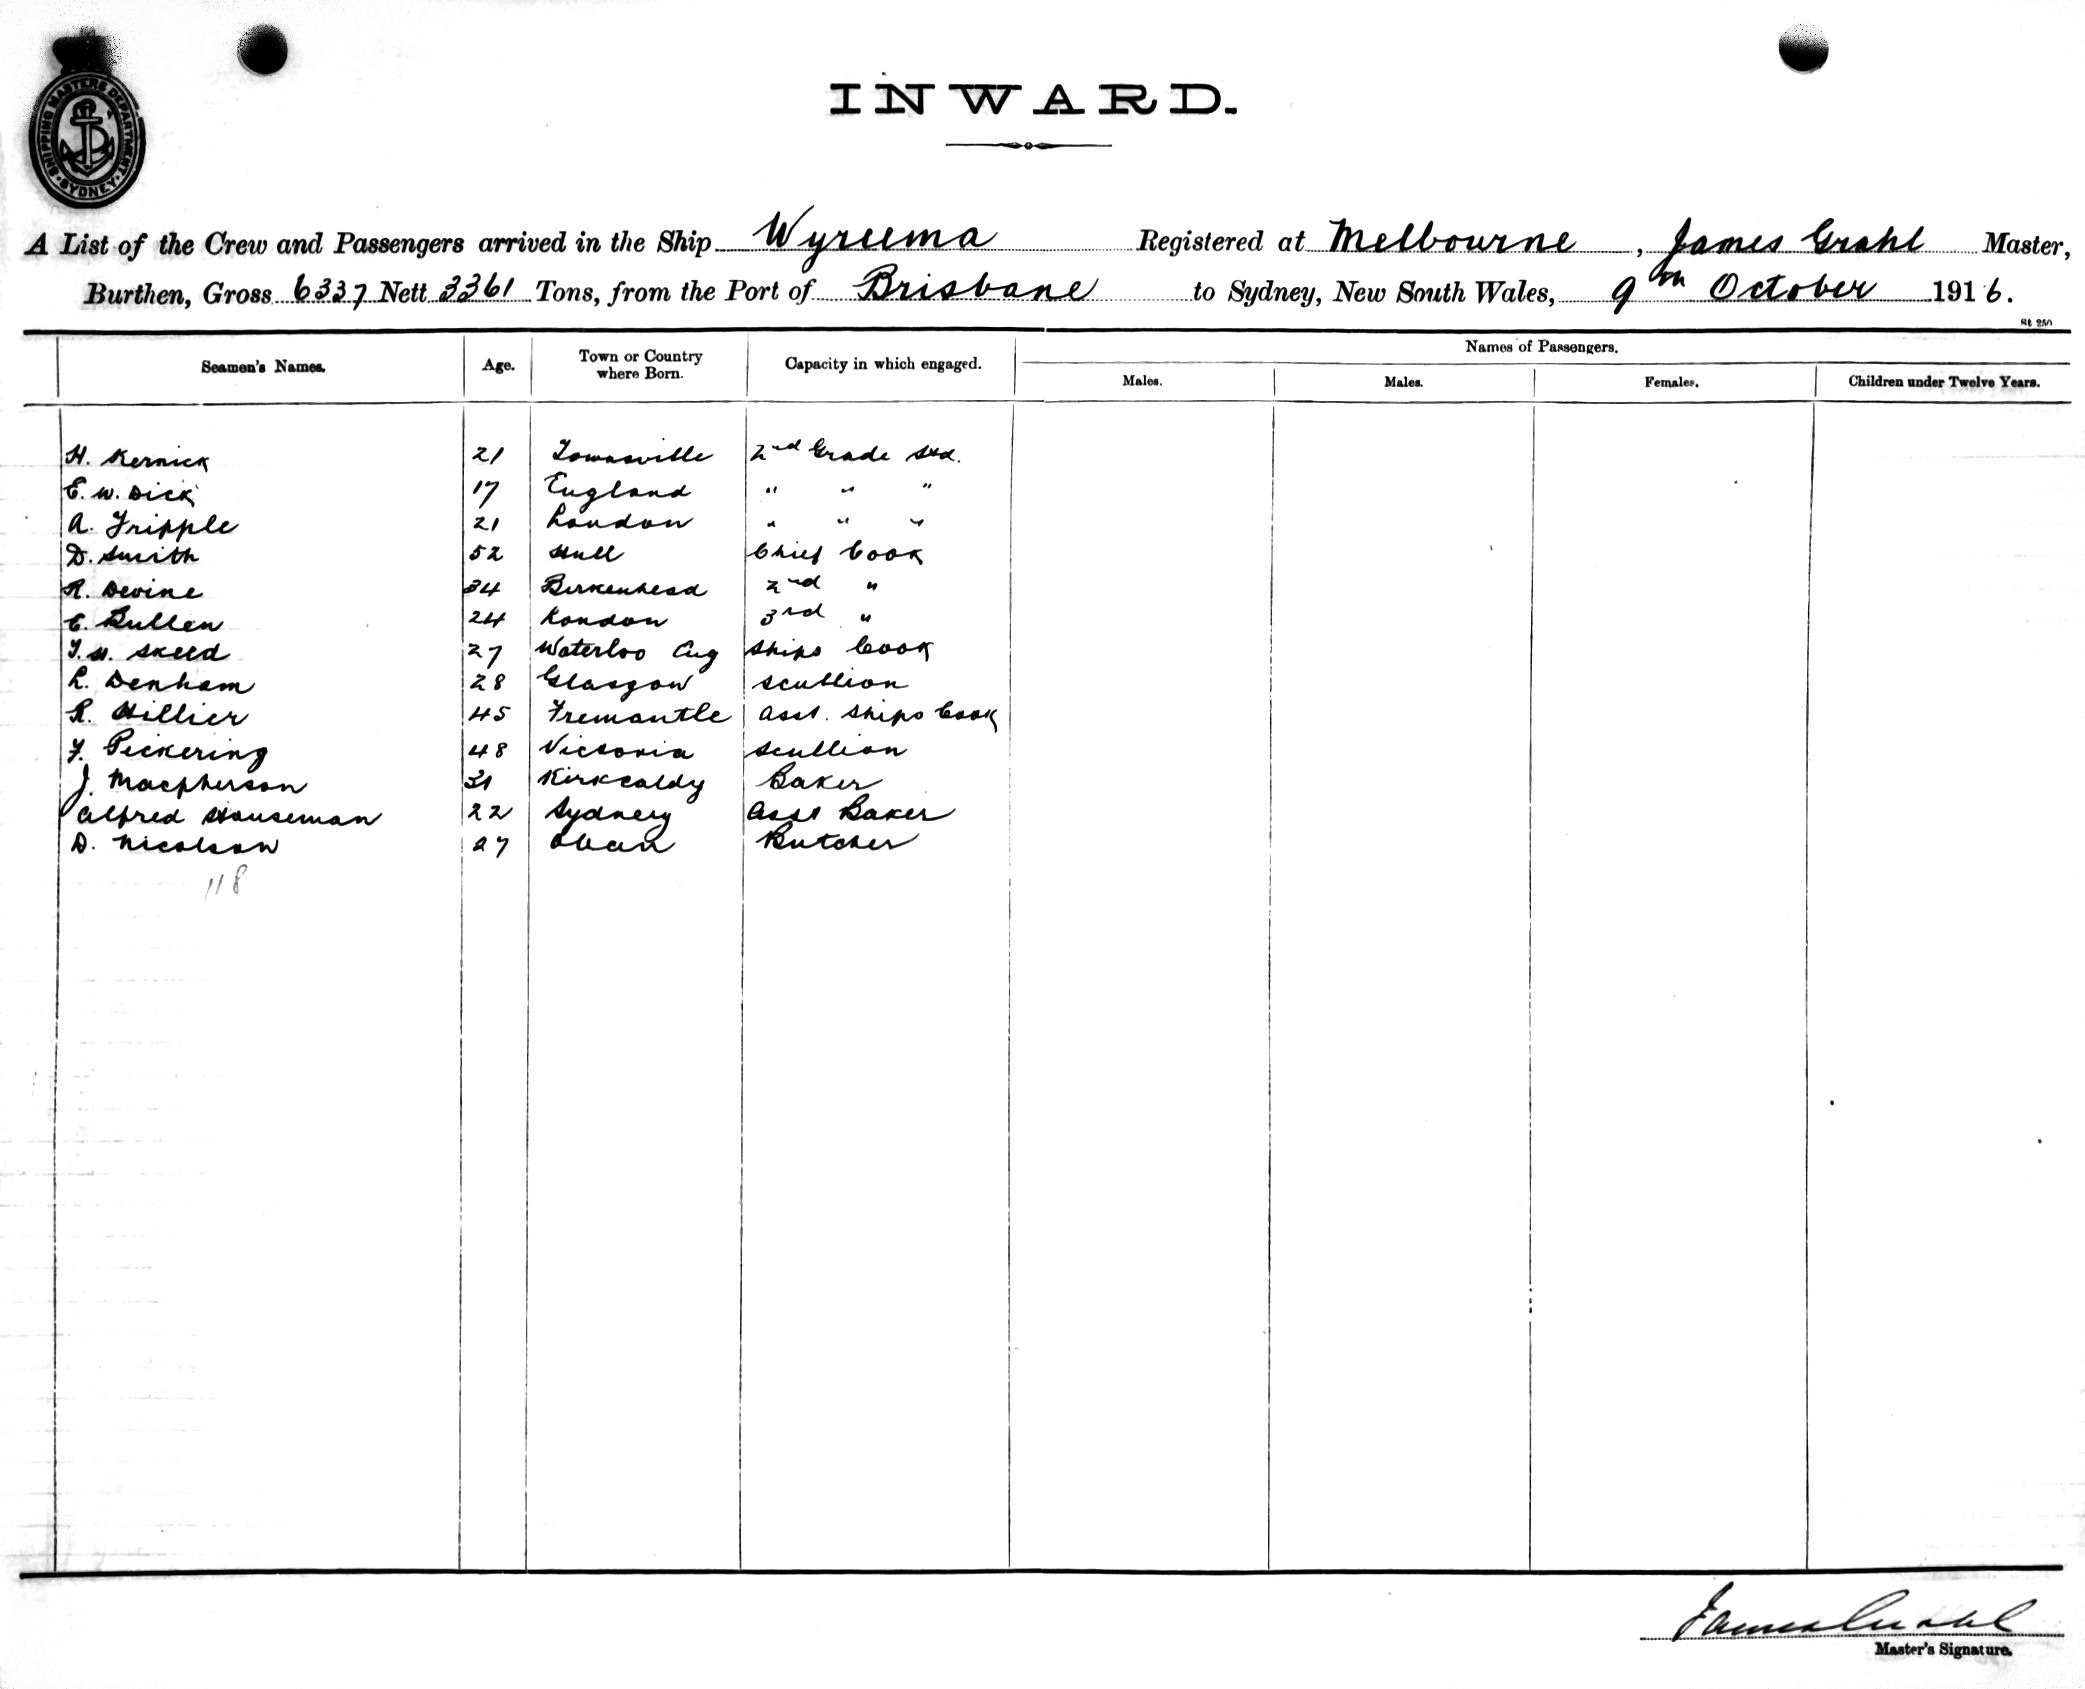 SHIPPING MASTERS DEPARTMENT
SYDNEY
INWARD.
A List of the Crew and Passengers arrived in the Ship Wyreema Registered at Melbourne, James Grahl Master,
Burthen, Gross 6337 Nett 3361 Tons, from the Port of Brisbane to Sydney, New South Wales, 9th October 1916.
St 250
Seamen's Names. Age. Town or Country where Born. Capacity in which engaged. Names of Passengers.
Males. Males. Females. Children under Twelve Years.
H. Kernick 21 Townsville 2nd Grade Std.
E. W. Dick 17 England " " "
A. Tripple 21 London " " "
D. Smith 52 Hull Chief Cook
R. Devine 34 Birkenhead 2nd "
C. Bullen 24 London 3rd "
T. H. Skeed 27 Waterloo Eng Ships Cook
L. Denham 28 Glasgow Scullion
R. Hillier 45 Fremantle Asst. Ships Cook
F. Pickering 48 Victoria Scullion
J. Macpherson 31 Kirkcaldy Baker
Alfred Houseman 22 Sydney Asst Baker
D. Nicolson 27 Oban Butcher
118
James Grahl
Master's Signature.